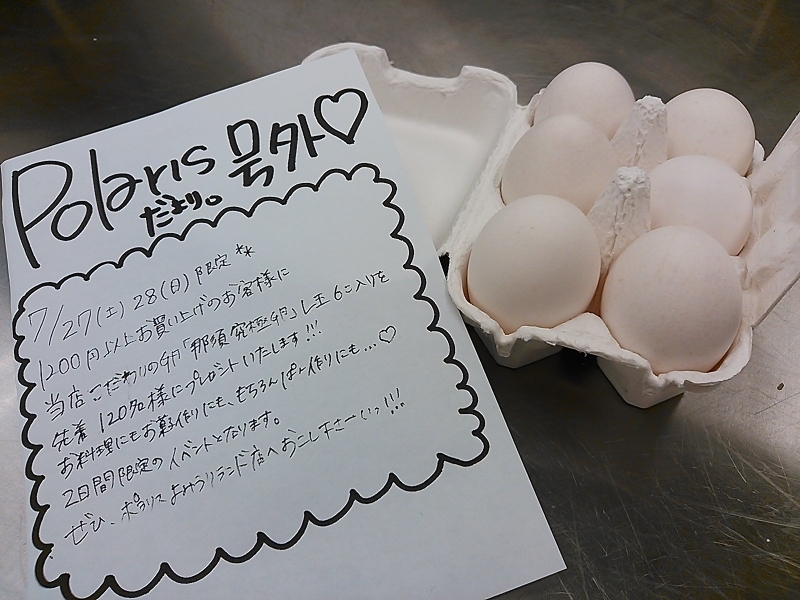 Polaris 号外♡
だより。
7/27(土) 28(日) 限定**
1200円以上お買い上げのお客様に
当店こだわりの卵「那須究極卵」L玉6こ入りを
先着120名様にプレゼントいたします!!!
お料理にもお菓子作りにも、もちろんぱん作りにも...♡
2日間限定のイベントとなります。
ぜひ、ポラリスよみうりランド店へおこし下さーいっ!!!